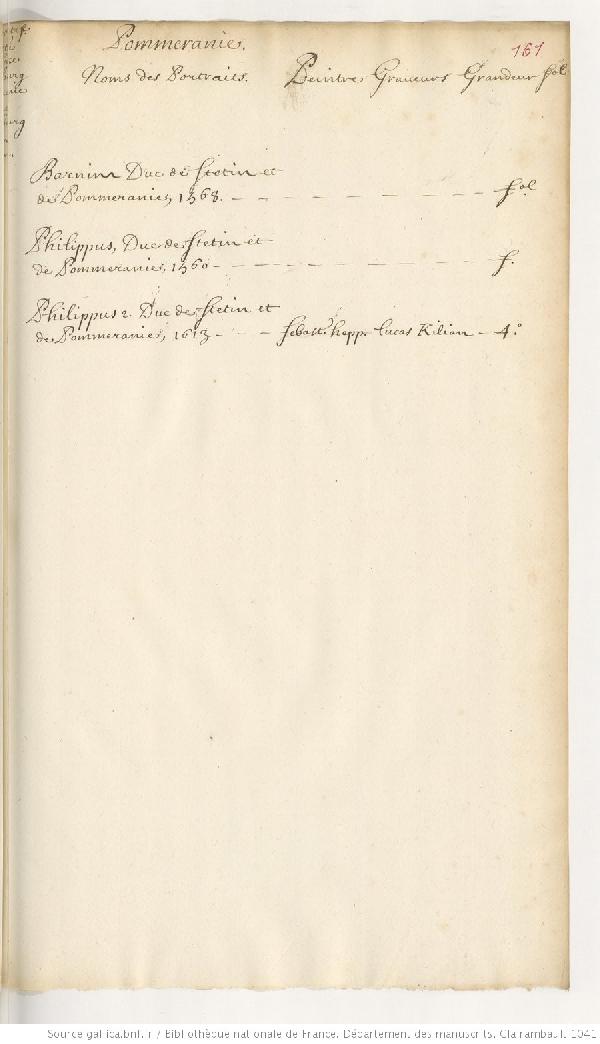 Pommeranie.
151
Noms des Portraits. Peintres Graveurs Grandeur fol
Barnim Duc de Stetin et
de Pommeranie, 1568. - - - - - - - - fol
Philippus, Duc de Stetin et
de Pommeranie, 1560 - - - - - - - - f.
Philippus 2. Duc de Stetin et
de Pommeranie, 1613 - - - Sebast. hepp. Lucas Kilian - 4.°
Source gallica.bnf.fr / Bibliothèque nationale de France. Département des manuscrits. Clairambault 1041